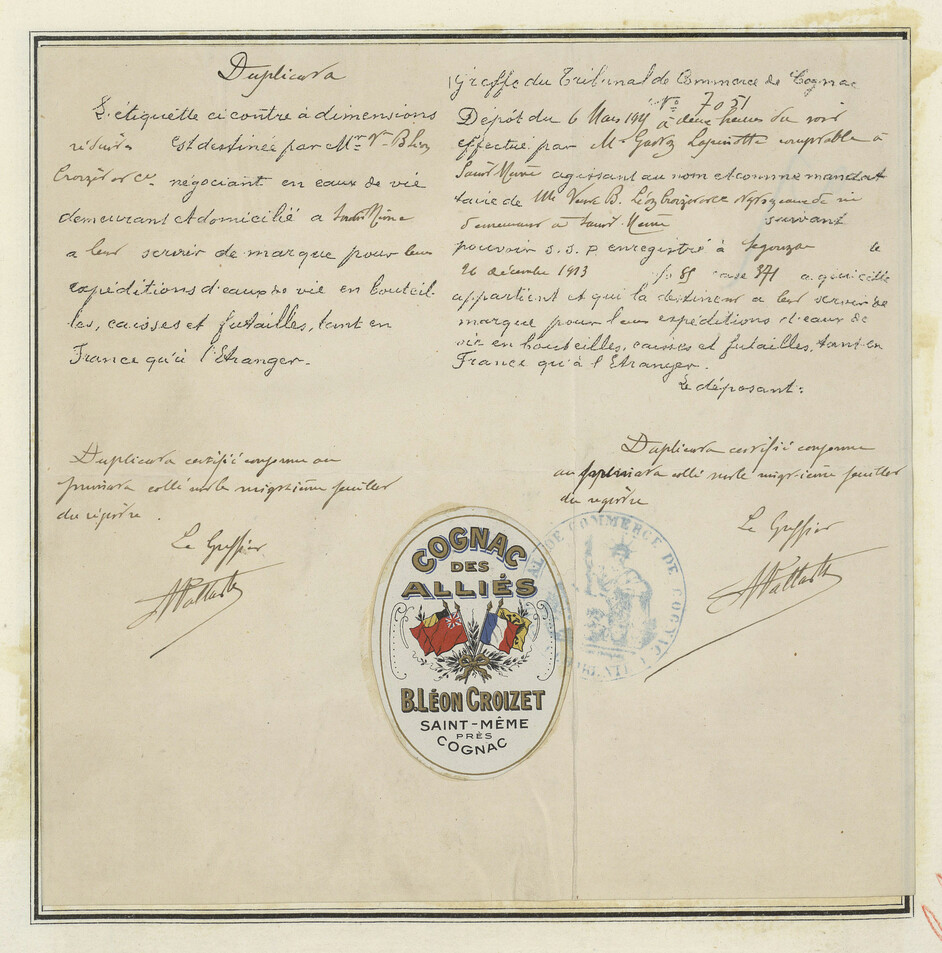 Duplicata
L'étiquette ci contre à dimensions
réduites est destinée par Mme Vve B. Léon
Croizet et Ce négociant en eaux de vie
demeurant et domicilié a Saint Même
a leur servir de marque pour leurs
expéditions d'eaux de vie en bouteil-
les, caisses et futailles, tant en
France qu'à l'Etranger.
Duplicata certifié conforme au
primata collé sur le vingtième feuillet
du registre.
Le Greffier
Greffe du Tribunal de Commerce de Cognac
No 7051
Dépôt du 6 Mars à deux heures du soir
effectué par Mr comptable à
Saint Même agissant au nom et comme mandat
taire de Me Veuve B. Léon Croizet et Ce Négts eaux de vie
demeurant à Saint Même suivant
pouvoir s. s. p. enregistré à Segonzac le
26 décembre 1913 fo 85 case 371 a qui elle
appartient et qui la destinent a leur servir de
marque pour leurs expéditions d'eaux de
vie en bouteilles, caisses et futailles, tant en
France qu'à l'Etranger.
Le déposant:
Duplicata certifié conforme
au primata collé sur le vingtième feuillet
du registre
Le Greffier
COGNAC
DES
ALLIÉS
B. LÉON CROIZET
SAINT-MÊME
PRÈS
COGNAC
DE COMMERCE DE COGNAC